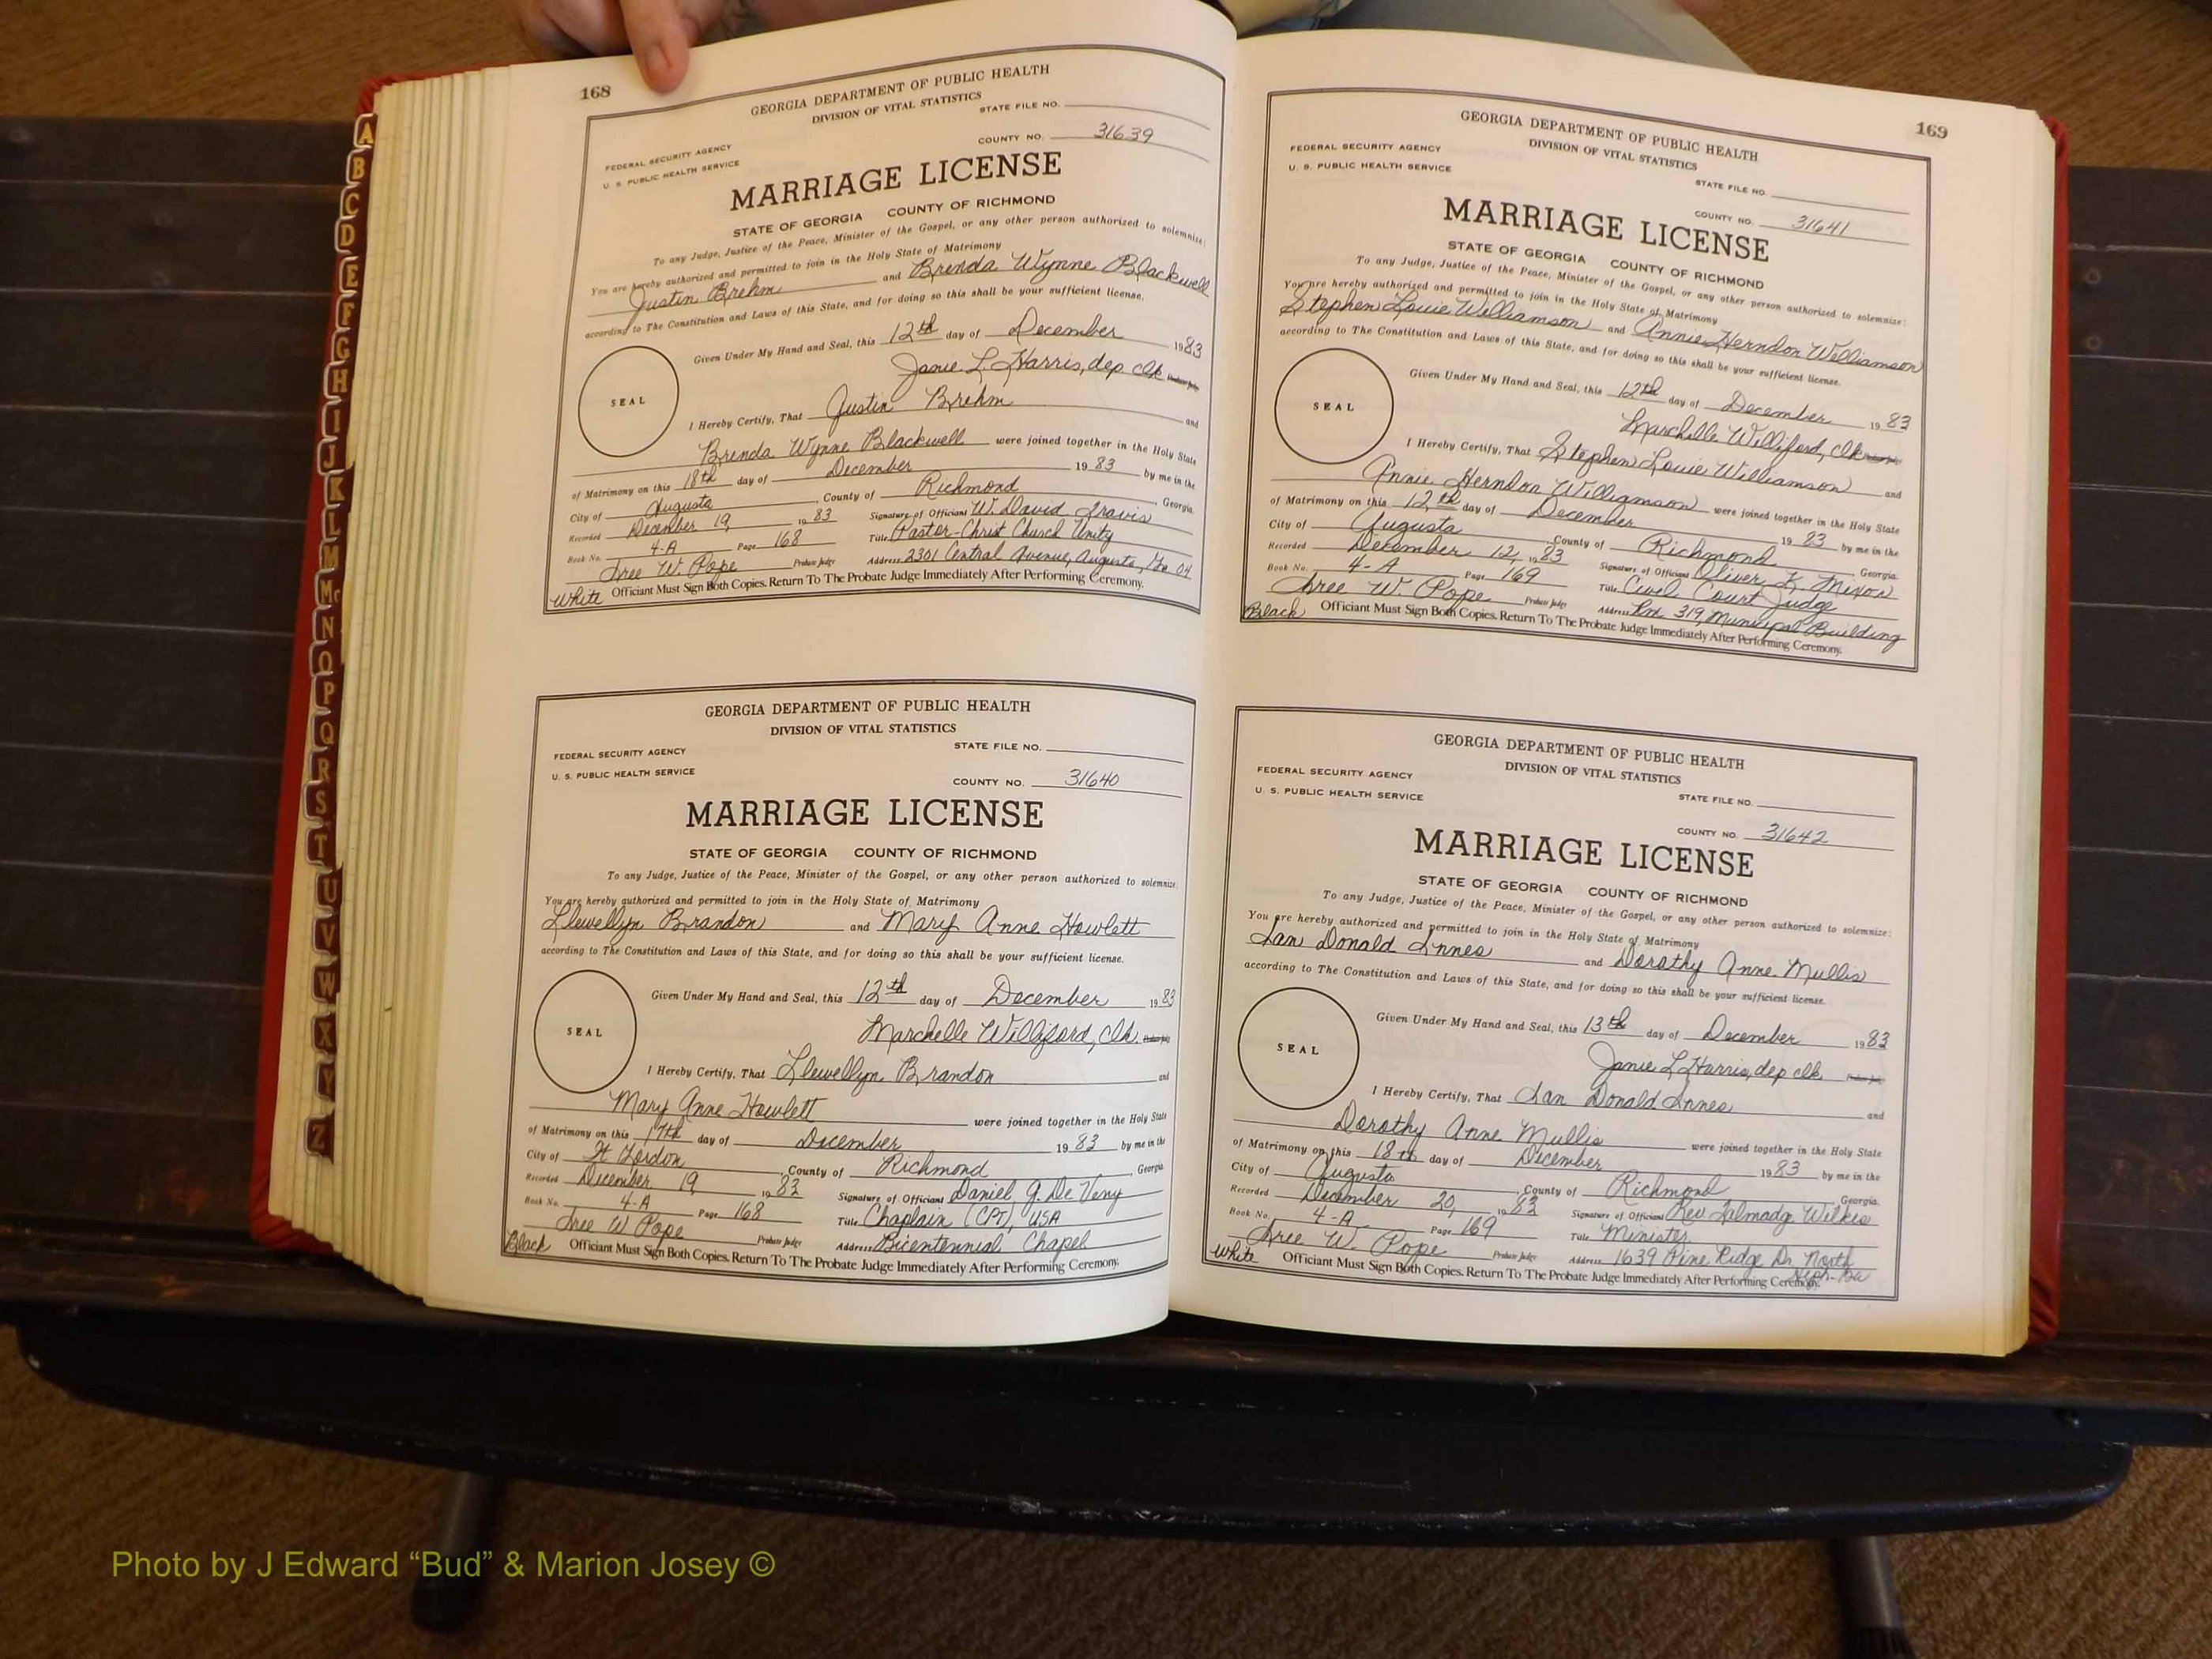 A
B
C
D
E
F
G
H
I
J
K
L
M
Mc
N
O
P
Q
R
S
T
U
V
W
X
Y
Z
168
GEORGIA DEPARTMENT OF PUBLIC HEALTH
DIVISION OF VITAL STATISTICS
STATE FILE NO.
FEDERAL SECURITY AGENCY
U. S. PUBLIC HEALTH SERVICE
COUNTY NO. 31639
MARRIAGE LICENSE
STATE OF GEORGIA COUNTY OF RICHMOND
To any Judge, Justice of the Peace, Minister of the Gospel, or any other person authorized to solemnize:
You are hereby authorized and permitted to join in the Holy State of Matrimony
Justin Brehm and Brenda Wynne Blackwell
according to The Constitution and Laws of this State, and for doing so this shall be your sufficient license.
Given Under My Hand and Seal, this 12th day of December 1983
Janie L Harris, dep clk
SEAL
I Hereby Certify, That Justin Brehm and
Brenda Wynne Blackwell were joined together in the Holy State
of Matrimony on this 18th day of December 1983 by me in the
City of Augusta, County of Richmond, Georgia.
Recorded December 19, 1983 Signature of Officiant W. David Travis
Book No. 4-A Page 168 Title Pastor-Christ Church Unity
Address 2301 Central Avenue, Augusta, Ga 04
W. Pope Probate Judge
White Officiant Must Sign Both Copies. Return To The Probate Judge Immediately After Performing Ceremony.
GEORGIA DEPARTMENT OF PUBLIC HEALTH
DIVISION OF VITAL STATISTICS
FEDERAL SECURITY AGENCY
STATE FILE NO.
U. S. PUBLIC HEALTH SERVICE
COUNTY NO. 31640
MARRIAGE LICENSE
STATE OF GEORGIA COUNTY OF RICHMOND
To any Judge, Justice of the Peace, Minister of the Gospel, or any other person authorized to solemnize:
You are hereby authorized and permitted to join in the Holy State of Matrimony
Llewellyn Brandon and Mary Anne Howlett
according to The Constitution and Laws of this State, and for doing so this shall be your sufficient license.
Given Under My Hand and Seal, this 12th day of December 1983
Marchelle Williford, Clk.
SEAL
I Hereby Certify, That Llewellyn Brandon and
Mary Anne Howlett were joined together in the Holy State
of Matrimony on this 17th day of December 1983 by me in the
City of Ft Gordon, County of Richmond, Georgia
Recorded December 19 1983 Signature of Officiant Daniel J. De Veny
Book No. 4-A Page 168 Title Chaplain (CPT), USA
W Pope Probate Judge Address Bicentennial Chapel
Black Officiant Must Sign Both Copies. Return To The Probate Judge Immediately After Performing Ceremony.
169
GEORGIA DEPARTMENT OF PUBLIC HEALTH
DIVISION OF VITAL STATISTICS
FEDERAL SECURITY AGENCY
U. S. PUBLIC HEALTH SERVICE
STATE FILE NO.
COUNTY NO. 31641
MARRIAGE LICENSE
STATE OF GEORGIA COUNTY OF RICHMOND
To any Judge, Justice of the Peace, Minister of the Gospel, or any other person authorized to solemnize:
You are hereby authorized and permitted to join in the Holy State of Matrimony
Stephen Louie Williamson and Annie Herndon Williamson
according to The Constitution and Laws of this State, and for doing so this shall be your sufficient license.
Given Under My Hand and Seal, this 12th day of December 1983
Marchelle Williford, clk
SEAL
I Hereby Certify, That Stephen Louie Williamson and
Annie Herndon Williamson were joined together in the Holy State
of Matrimony on this 12th day of December 1983 by me in the
City of Augusta, County of Richmond, Georgia.
Recorded December 12, 1983 Signature of Officiant Oliver K. Mixon
Book No. 4-A Page 169 Title Civil Court Judge
W. Pope Probate Judge Address Rm 319, Municipal Building
Black Officiant Must Sign Both Copies. Return To The Probate Judge Immediately After Performing Ceremony.
GEORGIA DEPARTMENT OF PUBLIC HEALTH
DIVISION OF VITAL STATISTICS
FEDERAL SECURITY AGENCY
U. S. PUBLIC HEALTH SERVICE
STATE FILE NO.
COUNTY NO. 31642
MARRIAGE LICENSE
STATE OF GEORGIA COUNTY OF RICHMOND
To any Judge, Justice of the Peace, Minister of the Gospel, or any other person authorized to solemnize:
You are hereby authorized and permitted to join in the Holy State of Matrimony
Ian Donald Innes and Dorothy Anne Mullis
according to The Constitution and Laws of this State, and for doing so this shall be your sufficient license.
Given Under My Hand and Seal, this 13th day of December 1983
Janie L Harris, dep clk
SEAL
I Hereby Certify, That Ian Donald Innes and
Dorothy Anne Mullis were joined together in the Holy State
of Matrimony on this 18th day of December 1983 by me in the
City of Augusta, County of Richmond, Georgia.
Recorded December 20, 1983 Signature of Officiant Rev Talmadge Wilkie
Book No. 4-A Page 169 Title Minister
W. Pope Probate Judge Address 1639 Pine Ridge Dr. North
White Officiant Must Sign Both Copies. Return To The Probate Judge Immediately After Performing Ceremony.
Photo by J Edward “Bud” & Marion Josey ©